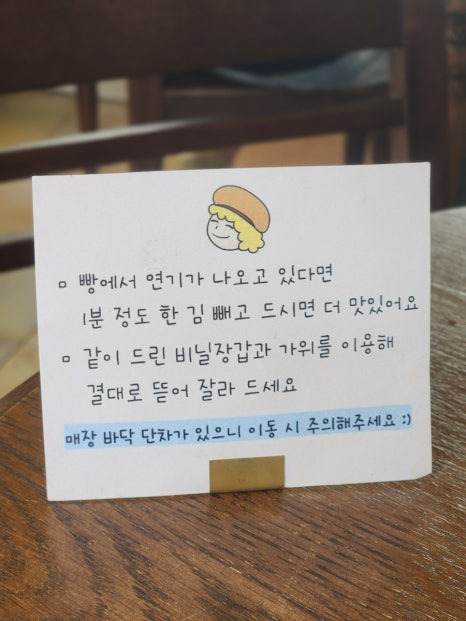 ▫ 빵에서 연기가 나오고 있다면
1분 정도 한 김 빼고 드시면 더 맛있어요
▫ 같이 드린 비닐장갑과 가위를 이용해
결대로 뜯어 잘라 드세요
매장 바닥 단차가 있으니 이동 시 주의해주세요 :)